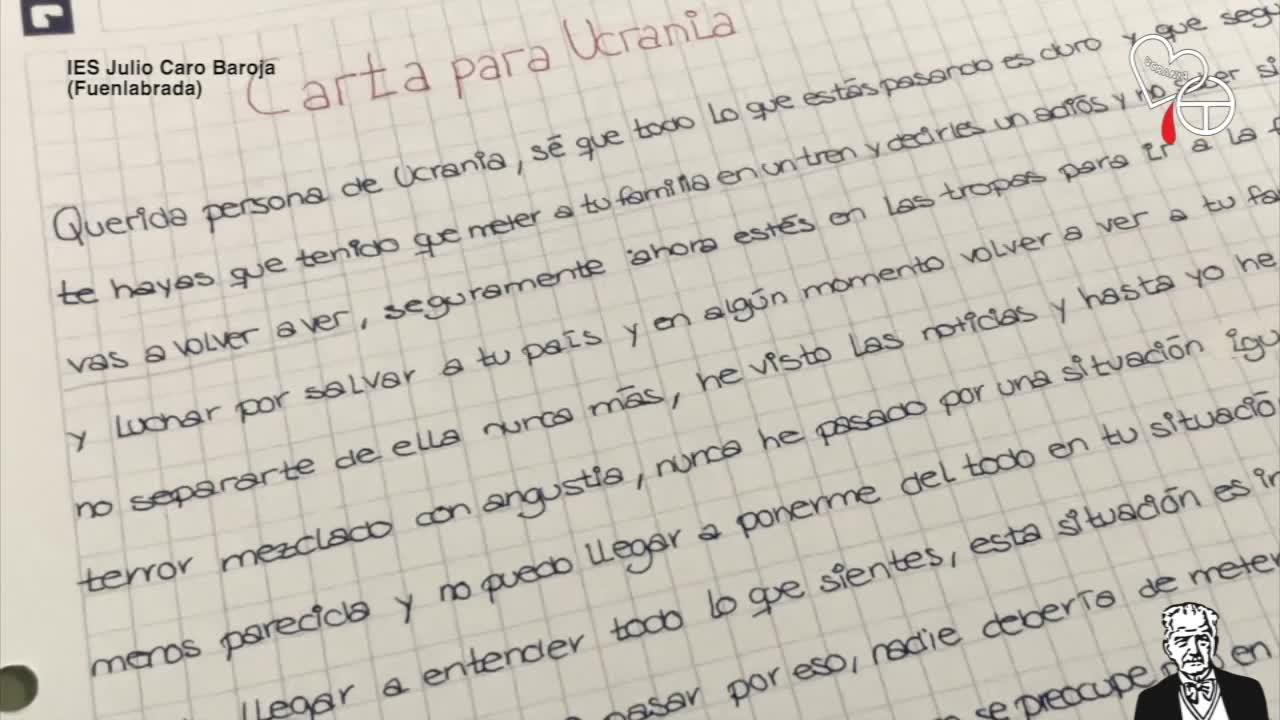 IES Julio Caro Baroja
(Fuenlabrada)
Carta para Ucrania
UCRANIA
Querida persona de Ucrania, sé que todo lo que estás pasando es duro y que segu
te hayas que tenido que meter a tu familia en un tren y decirles un adiós y no si
vas a volver a ver, seguramente ahora estés en las tropas para ir a la f
y luchar por salvar a tu país y en algún momento volver a ver a tu fa
no separarte de ella nunca más, he visto las noticias y hasta yo he
terror mezclado con angustia, nunca he pasado por una situación igu
menos parecida y no puedo llegar a ponerme del todo en tu situació
llegar a entender todo lo que sientes, esta situación es in
pasar por eso, nadie debería de meter
se preocupe en